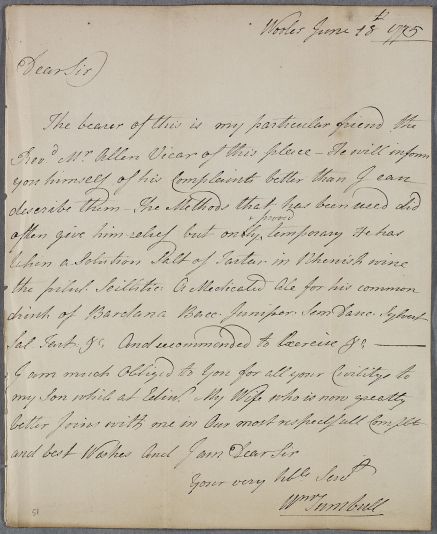 Wooler June 18th 1775
Dear Sir
The bearer of this is my particular friend the
Revd Mr Allen Vicar of this place - He will inform
you himself of his Complaints better than I can
describe them - The Methods that has been used did
often give him relief but only proved temporary He has
taken a Solution Salt of Tartar in Rhenish wine
the pilul. Scillitic. A Medicated Ale for his common
drink of Bardana Bacc. Juniper. Sem Dauc. Sylvest
Sal. &c And recommended to Exercise &c
I am much Obliged to You for all your Civilitys to
my Son while at Edinr. My Wife who is now greatly
better Joins with me in Our most respectfull Complts
and best Wishes And I am Dear Sir
Your very hble Servt
Wm Turnbull
51